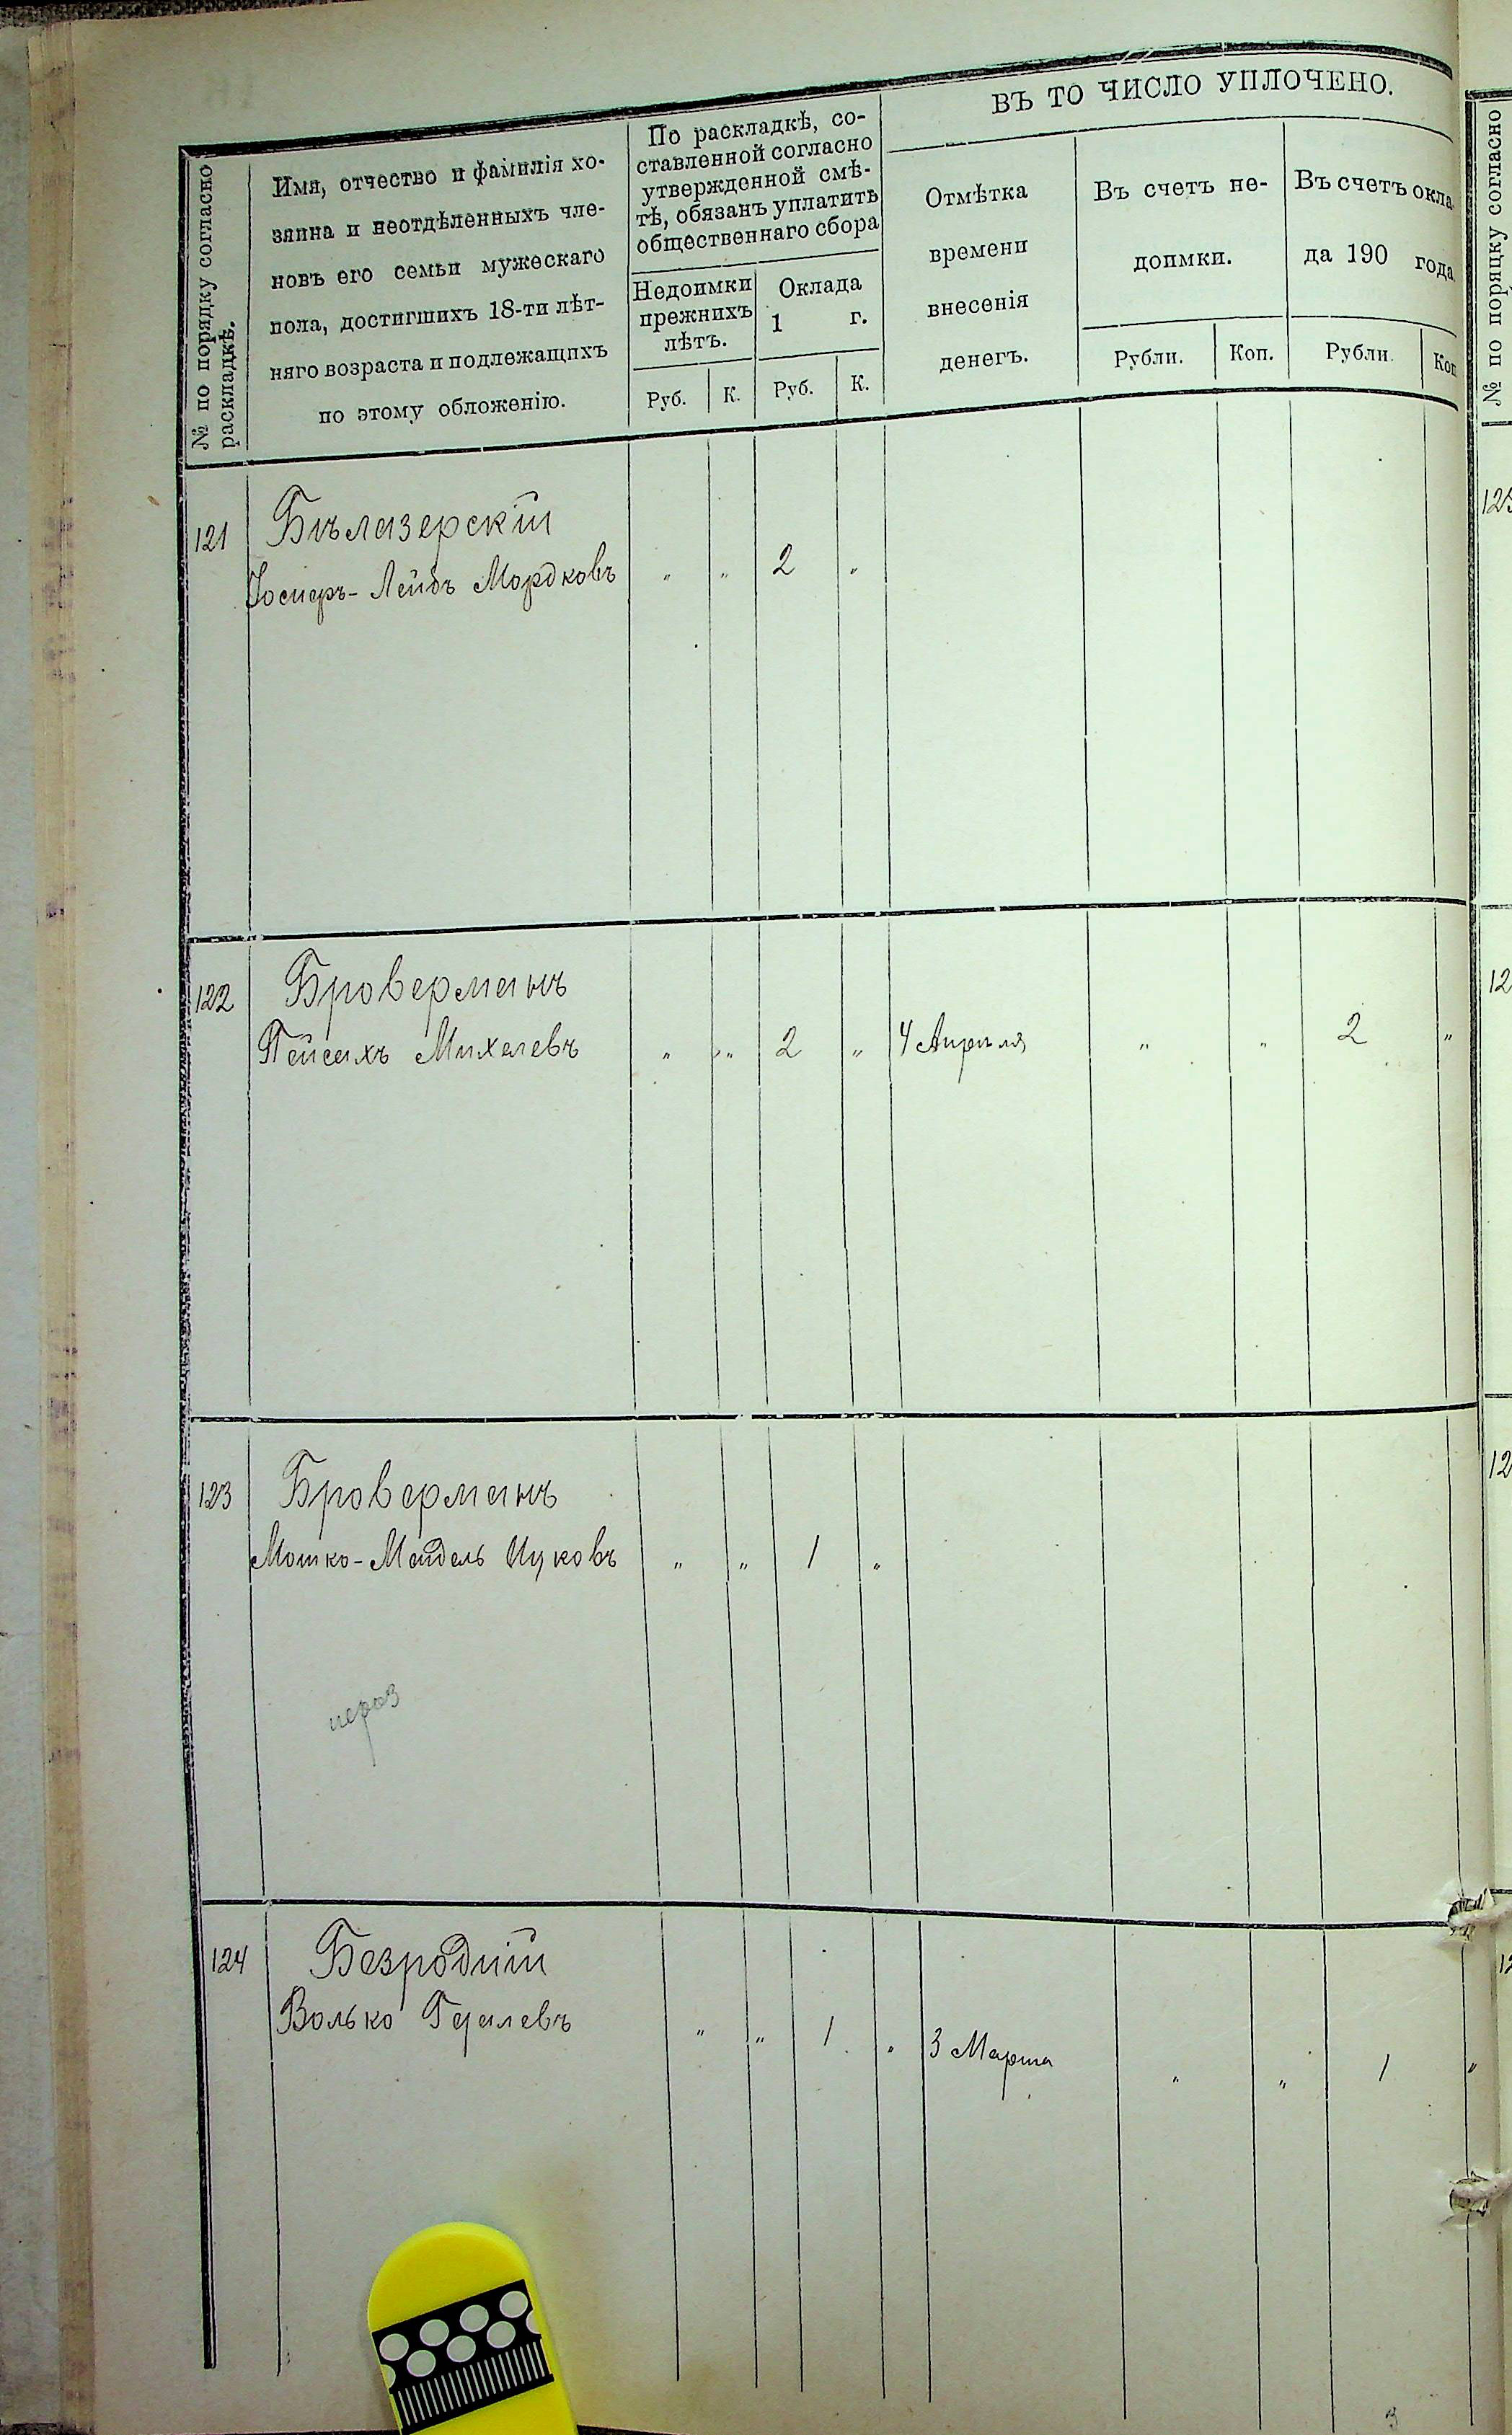 ВЪ ТО ЧИСЛО УПЛОЧЕНО.
№ по порядку согласно
раскладкѣ.
Имя, отчество и фамилія хо-
зяина и неотдѣленныхъ чле-
новъ его семьи мужескаго
пола, достигшихъ 18-ти лѣт-
няго возраста и подлежащихъ
по этому обложенію.
По раскладкѣ, со-
ставленной согласно
утвержденной смѣ-
тѣ, обязанъ уплатить
общественнаго сбора
Недоимки
прежнихъ
лѣтъ.
Оклада
1 г.
Руб. К. Руб. К.
Отмѣтка
времени
внесенія
денегъ.
Въ счетъ не-
доимки.
Рубли. Коп.
Въ счетъ окла-
да 190 года
Рубли. Коп
№ по порядку согласно
121 Бѣлазерскій
Лейбъ Мордковъ „ „ 2 „
122 Броверманъ
Пейсахъ Михелевъ „ „ 2 „ 4 Апрѣля „ „ 2 „
123 Броверманъ
Мошко-Мендель Ицковъ „ „ 1 „
124 Безродній
Волько „ „ 1 „ 3 Марта „ „ 1 „